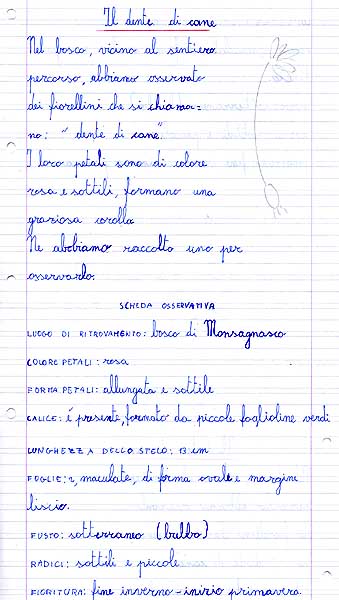 Il dente di cane
Nel bosco, vicino al sentiero
percorso, abbiamo osservato
dei fiorellini che si chiama=
no: "dente di cane"
I loro petali sono di colore
rosa e sottili, formano una
graziosa corolla
Ne abbiamo raccolto uno per
osservarlo.
SCHEDA OSSERVATIVA
LUOGO DI RITROVAMENTO: bosco di Monsagnasco
COLORE PETALI: rosa
FORMA PETALI: allungata e sottile
CALICE: é presente, formato da piccole foglioline verdi
LUNGHEZZA DELLO STELO: 13 cm
FOGLIE: 2, maculate, di forma ovale e margine
liscio.
FUSTO: sotterraneo (bulbo)
RADICI: sottili e piccole
FIORITURA: fine inverno - inizio primavera.